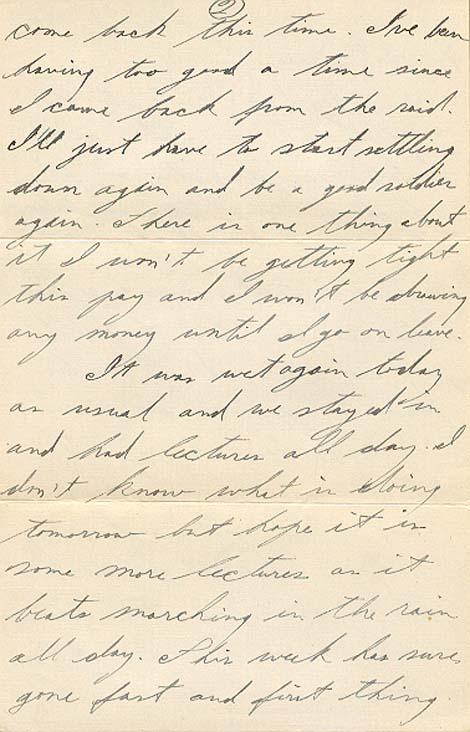 2
come back this time. I've been
having too good a time since
I came back from the raid.
I'll just have to start settling
down again and be a good soldier
again. There is one thing about
it I won't be getting tight
this pay and I won't be drawing
any money until I go on leave.
It was wet again today
as usual and we stayed in
and had lectures all day. I
don't know what is doing
tomorrow but hope it is
some more lectures as it
beats marching in the rain
all day. This week has sure
gone fast and first thing